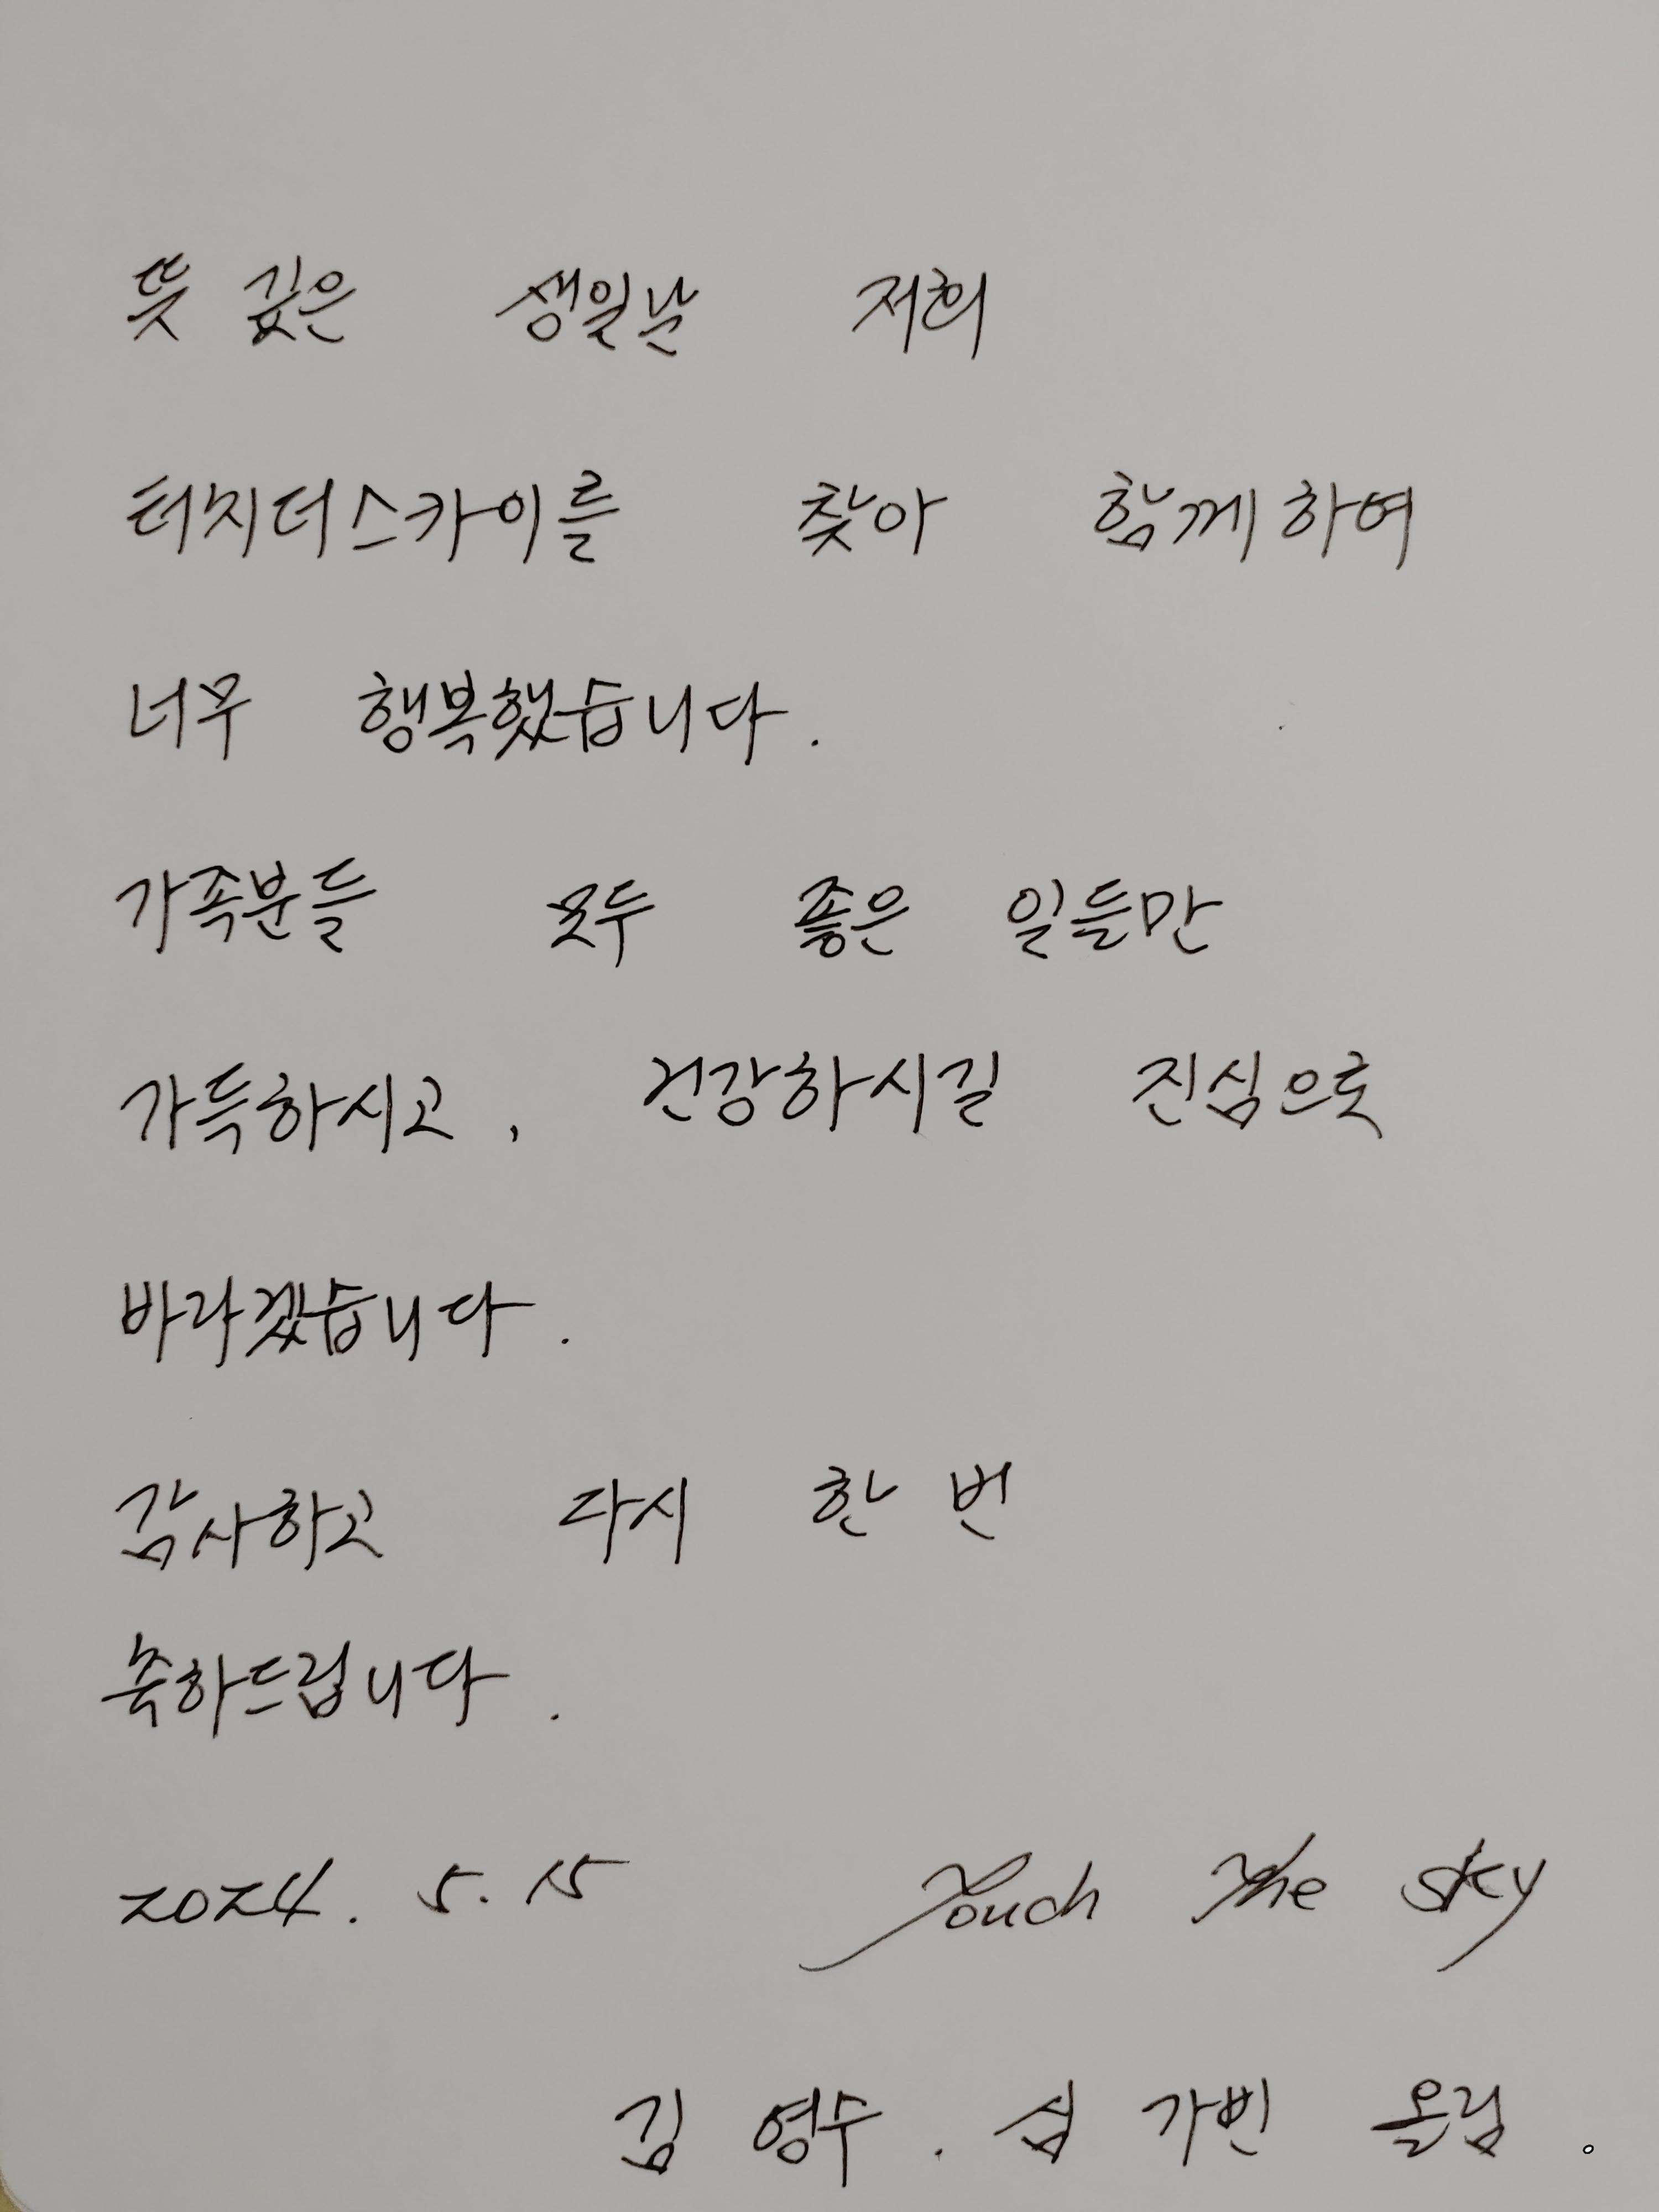 뜻 깊은 생일날 저희
터치더스카이를 찾아 함께하여
너무 행복했습니다.
가족분들 모두 좋은 일들만
가득하시고, 건강하시길 진심으로
바라겠습니다.
감사하고 다시 한 번
축하드립니다.
2024. 5. 15 Touch The Sky
김 영수. 심 가빈 올림.